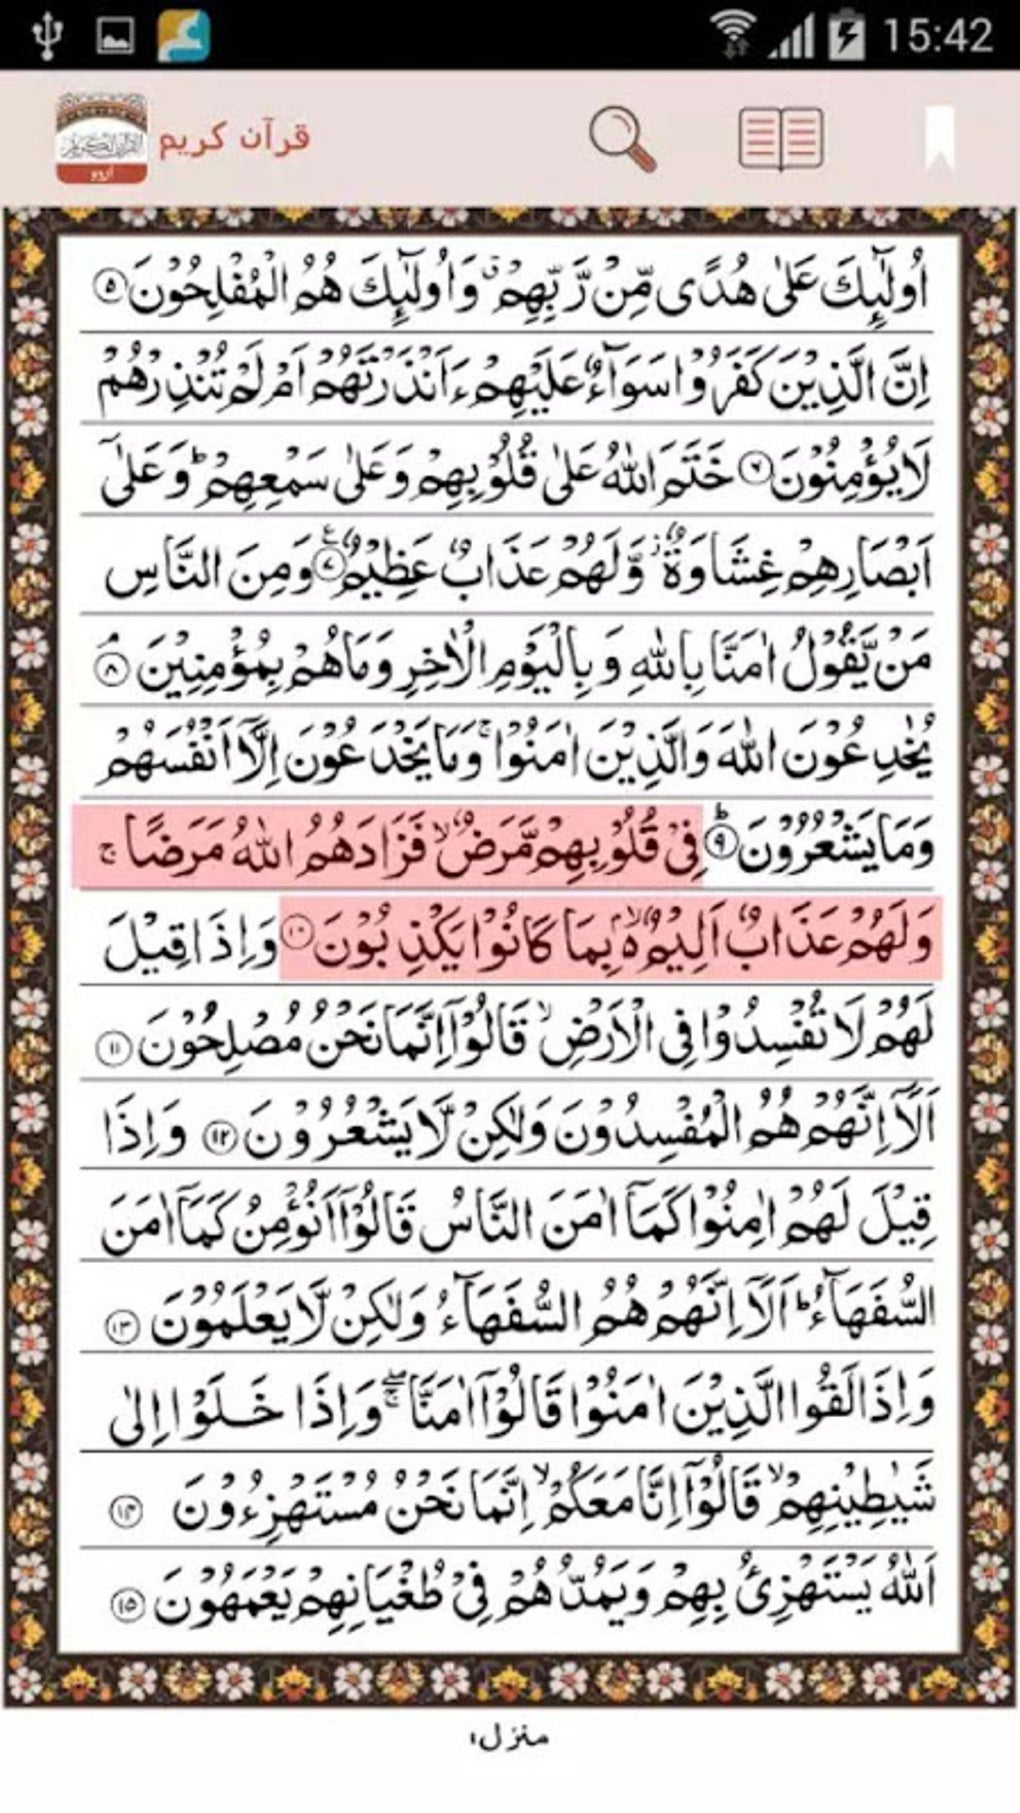 15:42
قرآن کریم
اردو
اُولٰٓئِكَ عَلٰى هُدًى مِّنْ رَّبِّهِمْ ۗ وَاُولٰٓئِكَ هُمُ الْمُفْلِحُوْنَ ۵
اِنَّ الَّذِيْنَ كَفَرُوْا سَوَآءٌ عَلَيْهِمْ ءَاَنْذَرْتَهُمْ اَمْ لَمْ تُنْذِرْهُمْ
لَا يُؤْمِنُوْنَ ۶ خَتَمَ اللّٰهُ عَلٰى قُلُوْبِهِمْ وَعَلٰى سَمْعِهِمْ ؕ وَعَلٰٓى
اَبْصَارِهِمْ غِشَاوَةٌ ز وَّلَهُمْ عَذَابٌ عَظِيْمٌ ۷ ع وَمِنَ النَّاسِ
مَنْ يَّقُوْلُ اٰمَنَّا بِاللّٰهِ وَبِالْيَوْمِ الْاٰخِرِ وَمَا هُمْ بِمُؤْمِنِيْنَ ۘ ۸
يُخٰدِعُوْنَ اللّٰهَ وَالَّذِيْنَ اٰمَنُوْا ۚ وَمَا يَخْدَعُوْنَ اِلَّآ اَنْفُسَهُمْ
وَمَا يَشْعُرُوْنَ ؕ ۹ فِىْ قُلُوْبِهِمْ مَّرَضٌ ۙ فَزَادَهُمُ اللّٰهُ مَرَضًا ۚ
وَلَهُمْ عَذَابٌ اَلِيْمٌ ۢ ۙ بِمَا كَانُوْا يَكْذِبُوْنَ ۱۰ وَاِذَا قِيْلَ
لَهُمْ لَا تُفْسِدُوْا فِى الْاَرْضِ ۙ قَالُوْٓا اِنَّمَا نَحْنُ مُصْلِحُوْنَ ۱۱
اَلَآ اِنَّهُمْ هُمُ الْمُفْسِدُوْنَ وَلٰكِنْ لَّا يَشْعُرُوْنَ ۱۲ وَاِذَا
قِيْلَ لَهُمْ اٰمِنُوْا كَمَآ اٰمَنَ النَّاسُ قَالُوْٓا اَنُؤْمِنُ كَمَآ اٰمَنَ
السُّفَهَآءُ ؕ اَلَآ اِنَّهُمْ هُمُ السُّفَهَآءُ وَلٰكِنْ لَّا يَعْلَمُوْنَ ۱۳
وَاِذَا لَقُوا الَّذِيْنَ اٰمَنُوْا قَالُوْٓا اٰمَنَّا ۖۚ وَاِذَا خَلَوْا اِلٰى
شَيٰطِيْنِهِمْ ۙ قَالُوْٓا اِنَّا مَعَكُمْ ۙ اِنَّمَا نَحْنُ مُسْتَهْزِءُوْنَ ۱۴
اَللّٰهُ يَسْتَهْزِئُ بِهِمْ وَيَمُدُّهُمْ فِىْ طُغْيَانِهِمْ يَعْمَهُوْنَ ۱۵
منزل۱